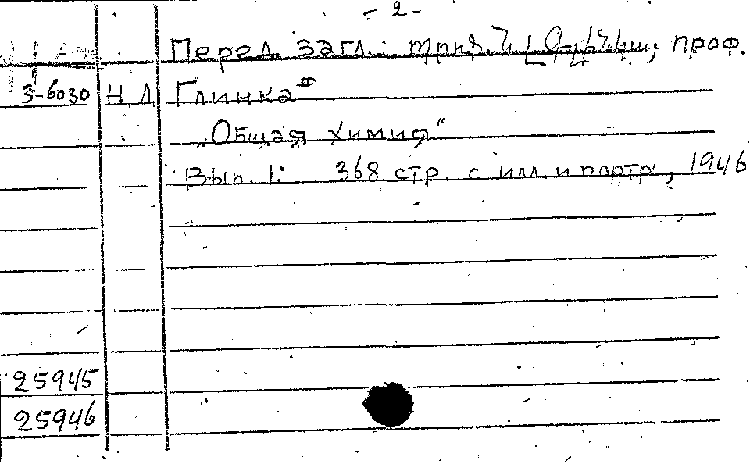 - 2 -
Перед загл.: պրոֆ. Ն Լ Գլինկա, проф.
3-6030 Н Л Глинка
„Общая химия"
Вып. 1. 368 стр. с илл. и портр., 1946
25945
25946